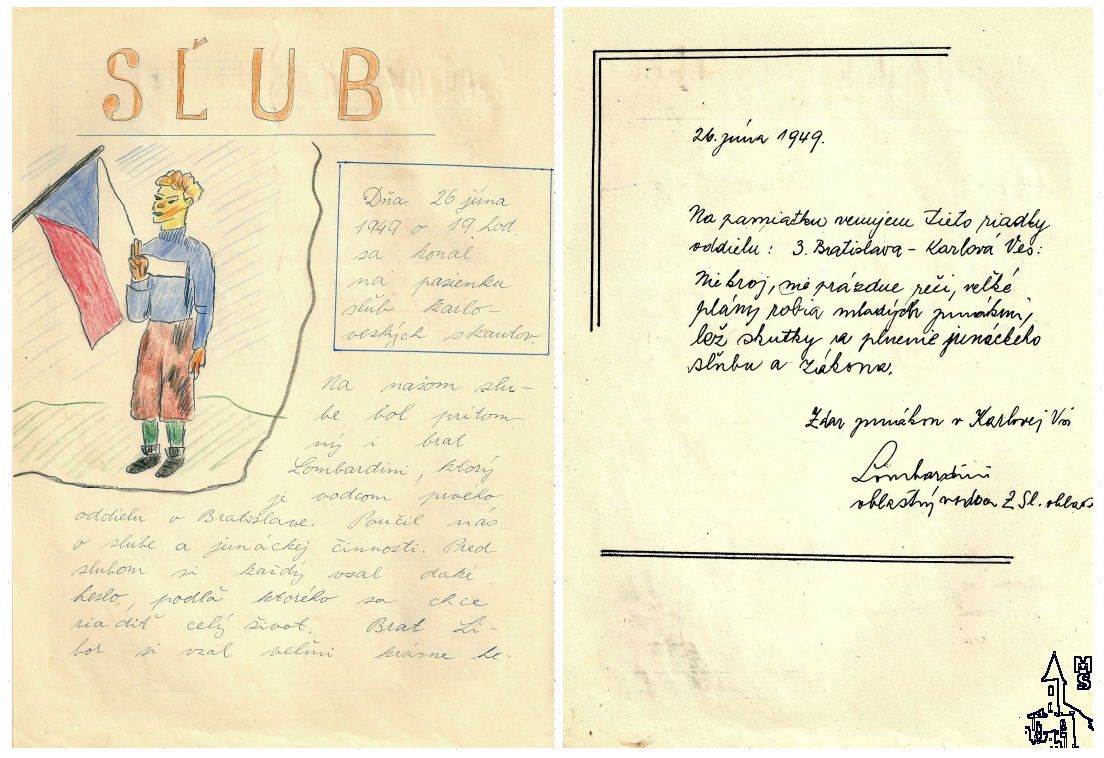 SĽUB
Dňa 26 júna
1949 o 19 hod.
sa konal
na pasienku
slúb karlo-
veských skautov.
Na našom slu-
be bol prítom-
ný i brat
Lombardini, ktorý
je vodcom prvého
oddielu v Bratislave. Poučil nás
o slube a junáckej činnosti. Pred
slubom si každý vzal daké
heslo, podľa ktorého sa chce
riadiť celý život. Brat Li-
bor si vzal veľmi krásne he-
26. júna 1949.
Na pamiatku venujem tieto riadky
oddielu: 3. Bratislava - Karlová Ves:
Nie kroj, nie prázdne reči, veľké
plány robia mladých junákmi,
lež skutky a plnenie junáckeho
slubu a zákona.
Zdar junákom v Karlovej Vsi
Lombardini
oblastný vodca Z Sl. oblas
MS